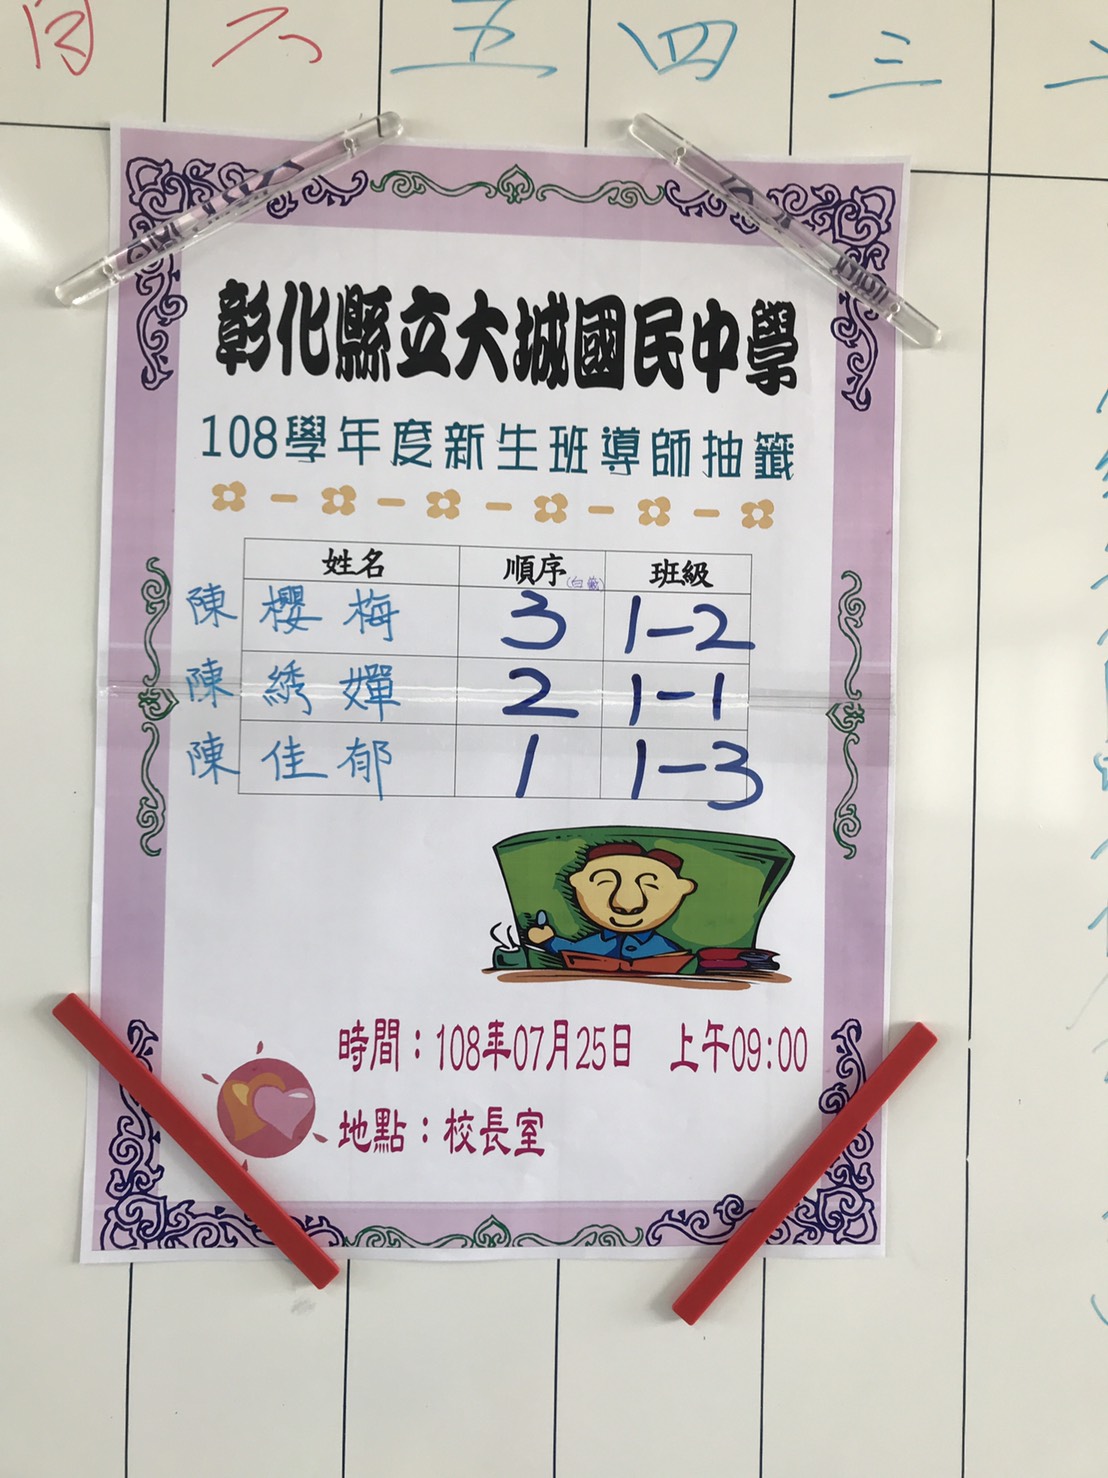 日 六 五 四 三
彰化縣立大城國民中學
108學年度新生班導師抽籤
姓名 順序(白籤) 班級
陳櫻梅 3 1-2
陳綉嬋 2 1-1
陳佳郁 1 1-3
時間：108年07月25日 上午09:00
地點：校長室